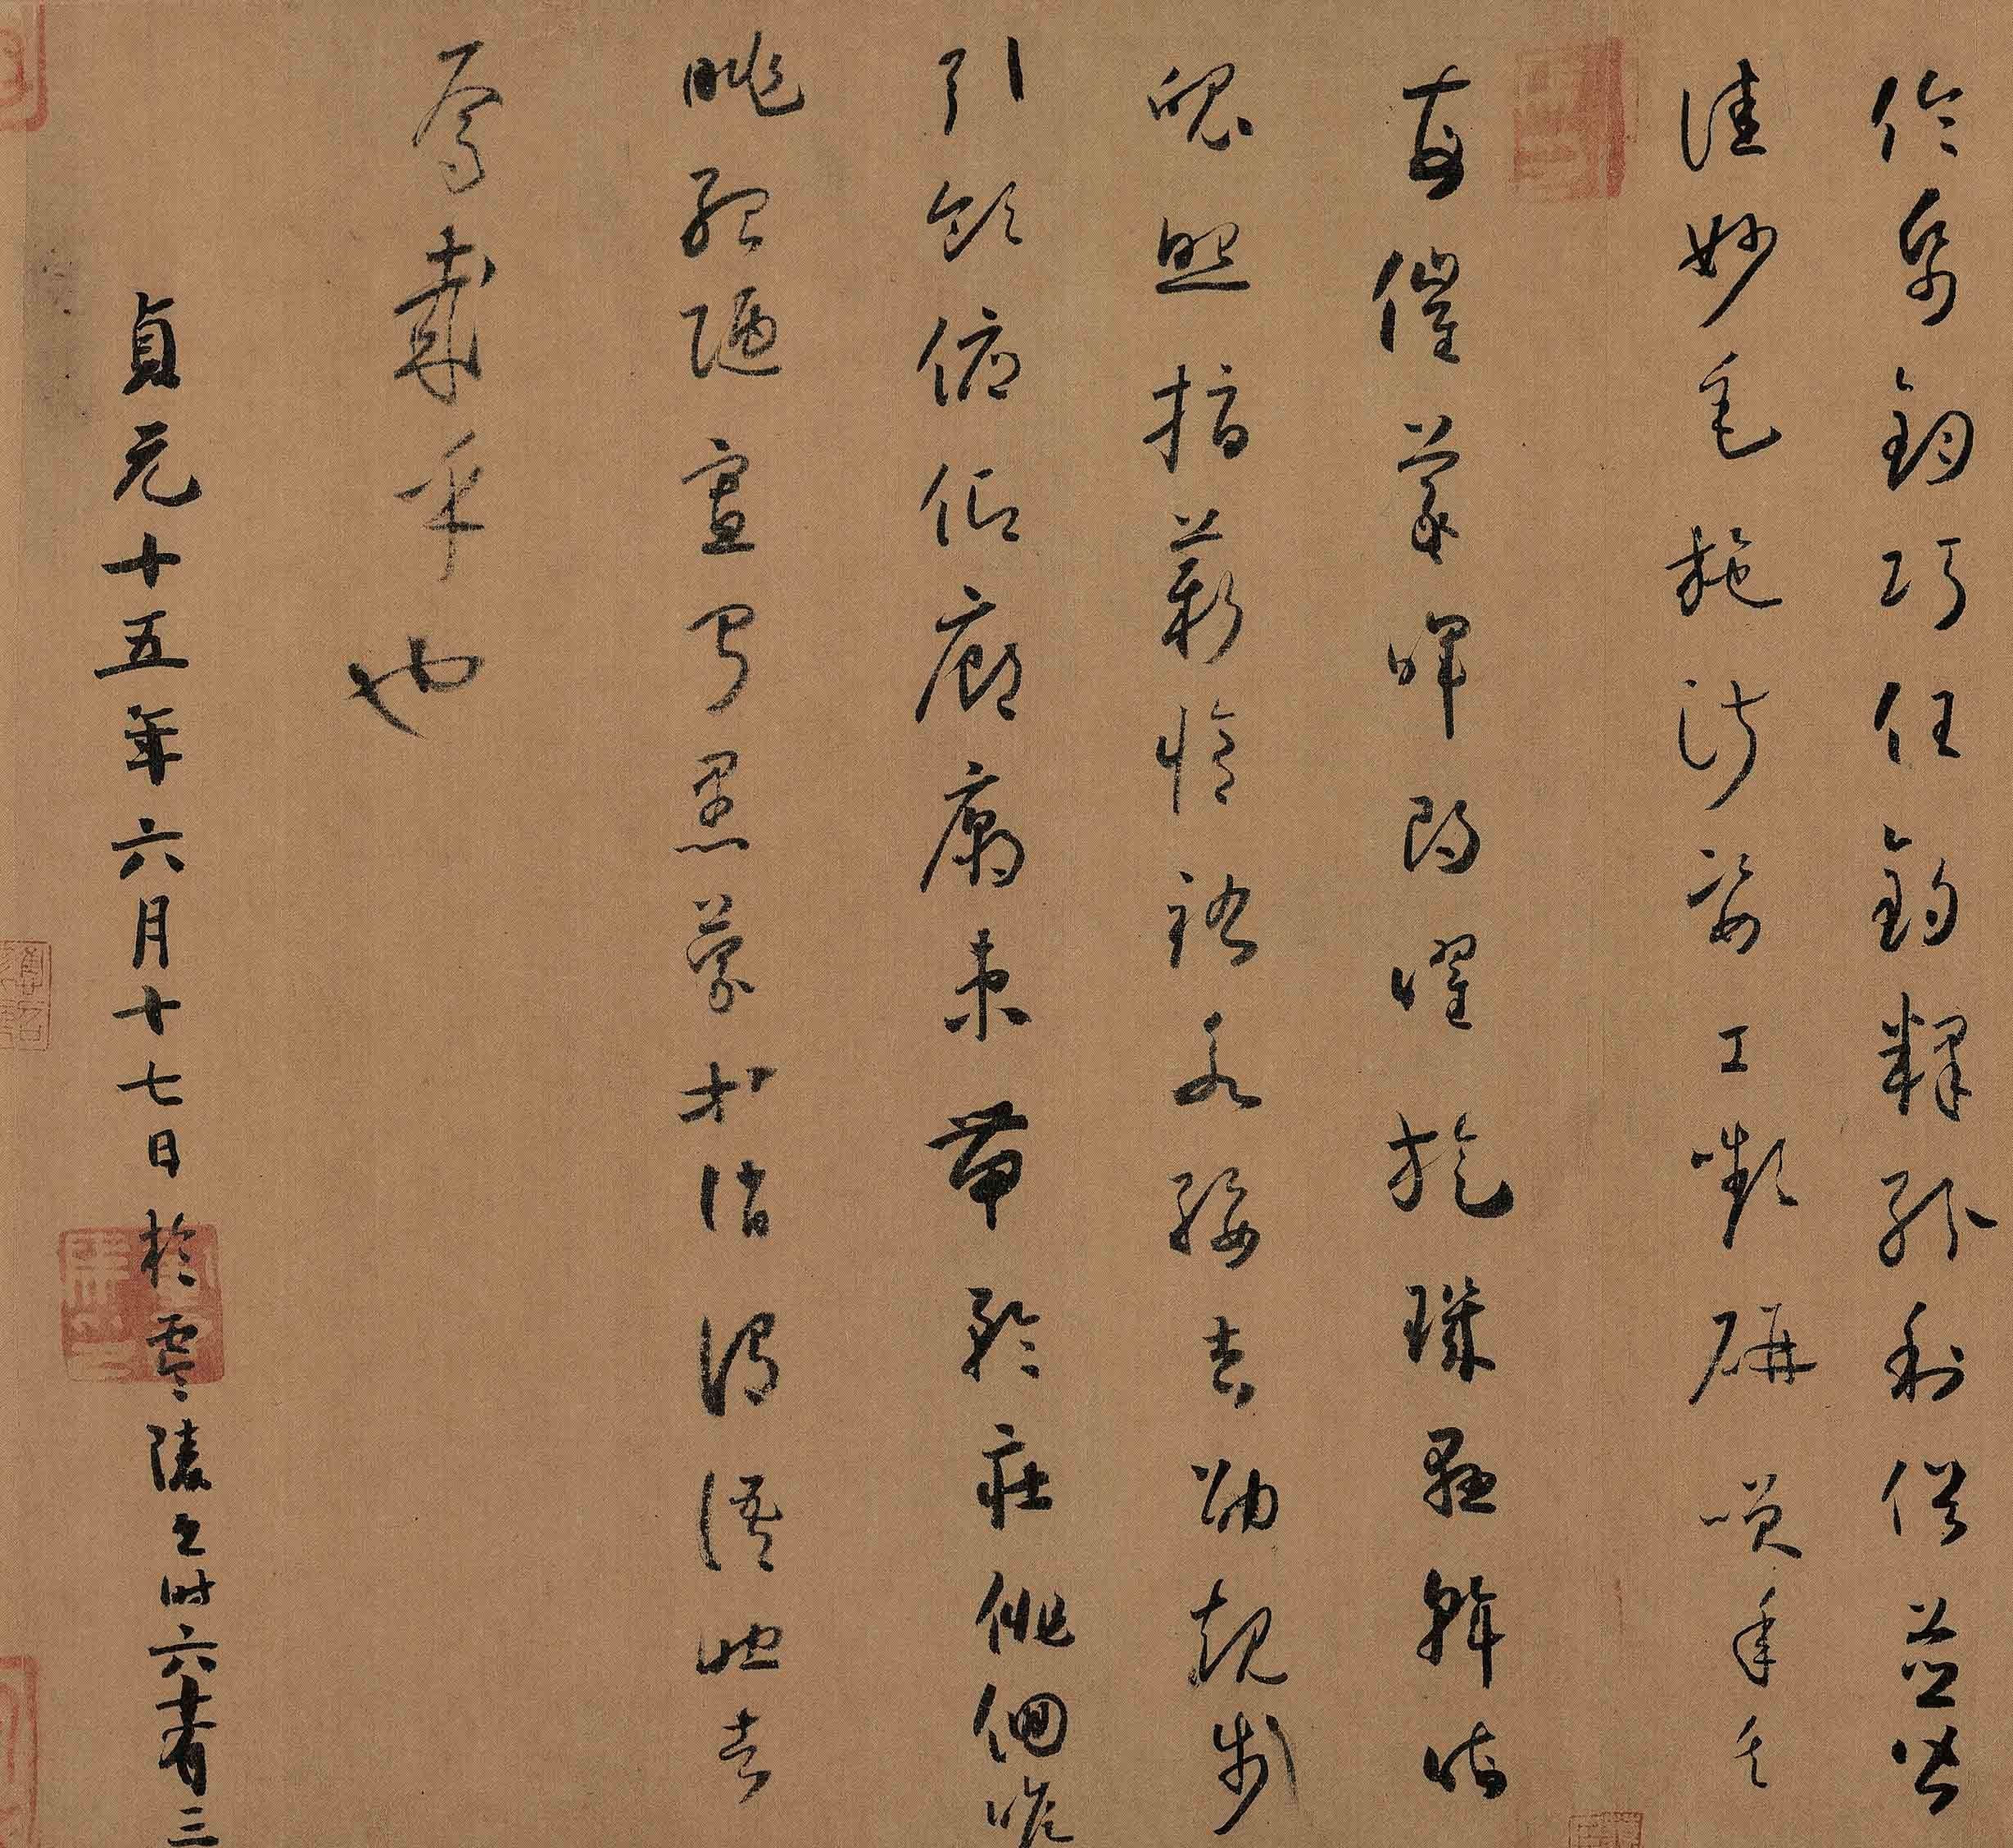 倫帋鈞巧任釣釋紛利俗並皆
佳妙毛施淑姿工顰妍笑年矢
每催羲暉朗曜旋璣懸斡晦
魄照指薪脩祜永綏吉劭矩步
引領俯仰廊廟束帶矜莊徘徊瞻
眺孤陋寡聞愚蒙等誚謂語助者
焉哉乎也
貞元十五年六月十七日於零陵書時六十有三